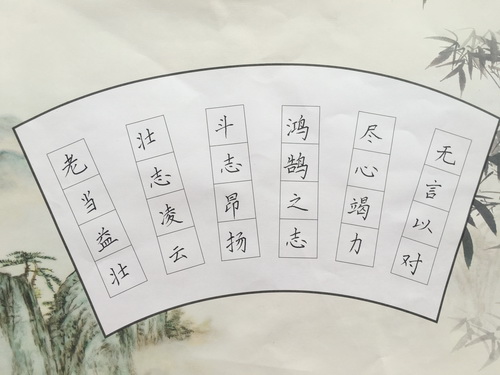 老当益壮
壮志凌云
斗志昂扬
鸿鹄之志
尽心竭力
无言以对